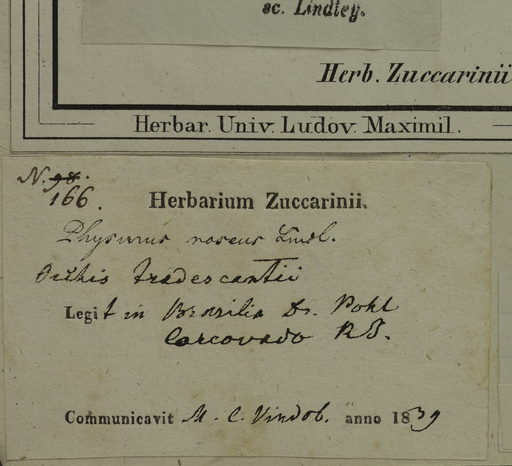 sc. Lindley.
Herb. Zuccarinii
Herbar. Univ. Ludov. Maximil.
N. 98.
166.
Herbarium Zuccarinii.
Physurus roseus Lindl.
Orchis tradescantii
Legit in Brasilia Dr. Pohl
Corcovado R. J.
Communicavit M. C. Vindob. anno 1839